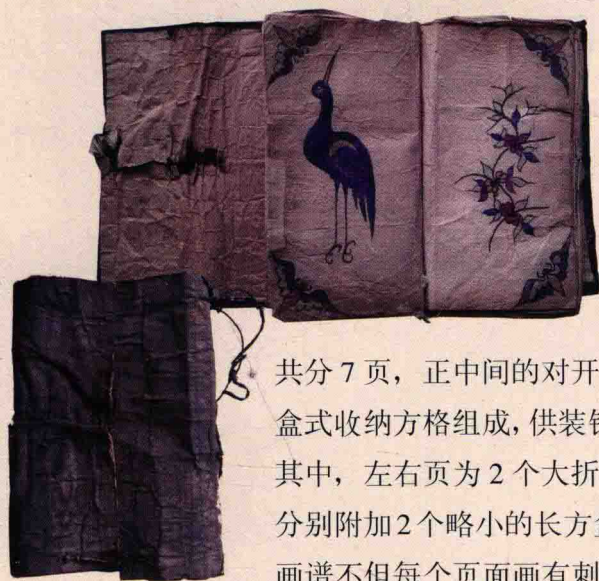 共分 7 页，正中间的对开
盒式收纳方格组成，供装
其中，左右页为 2 个大折
分别附加 2 个略小的长方
画谱不但每个页面画有刺